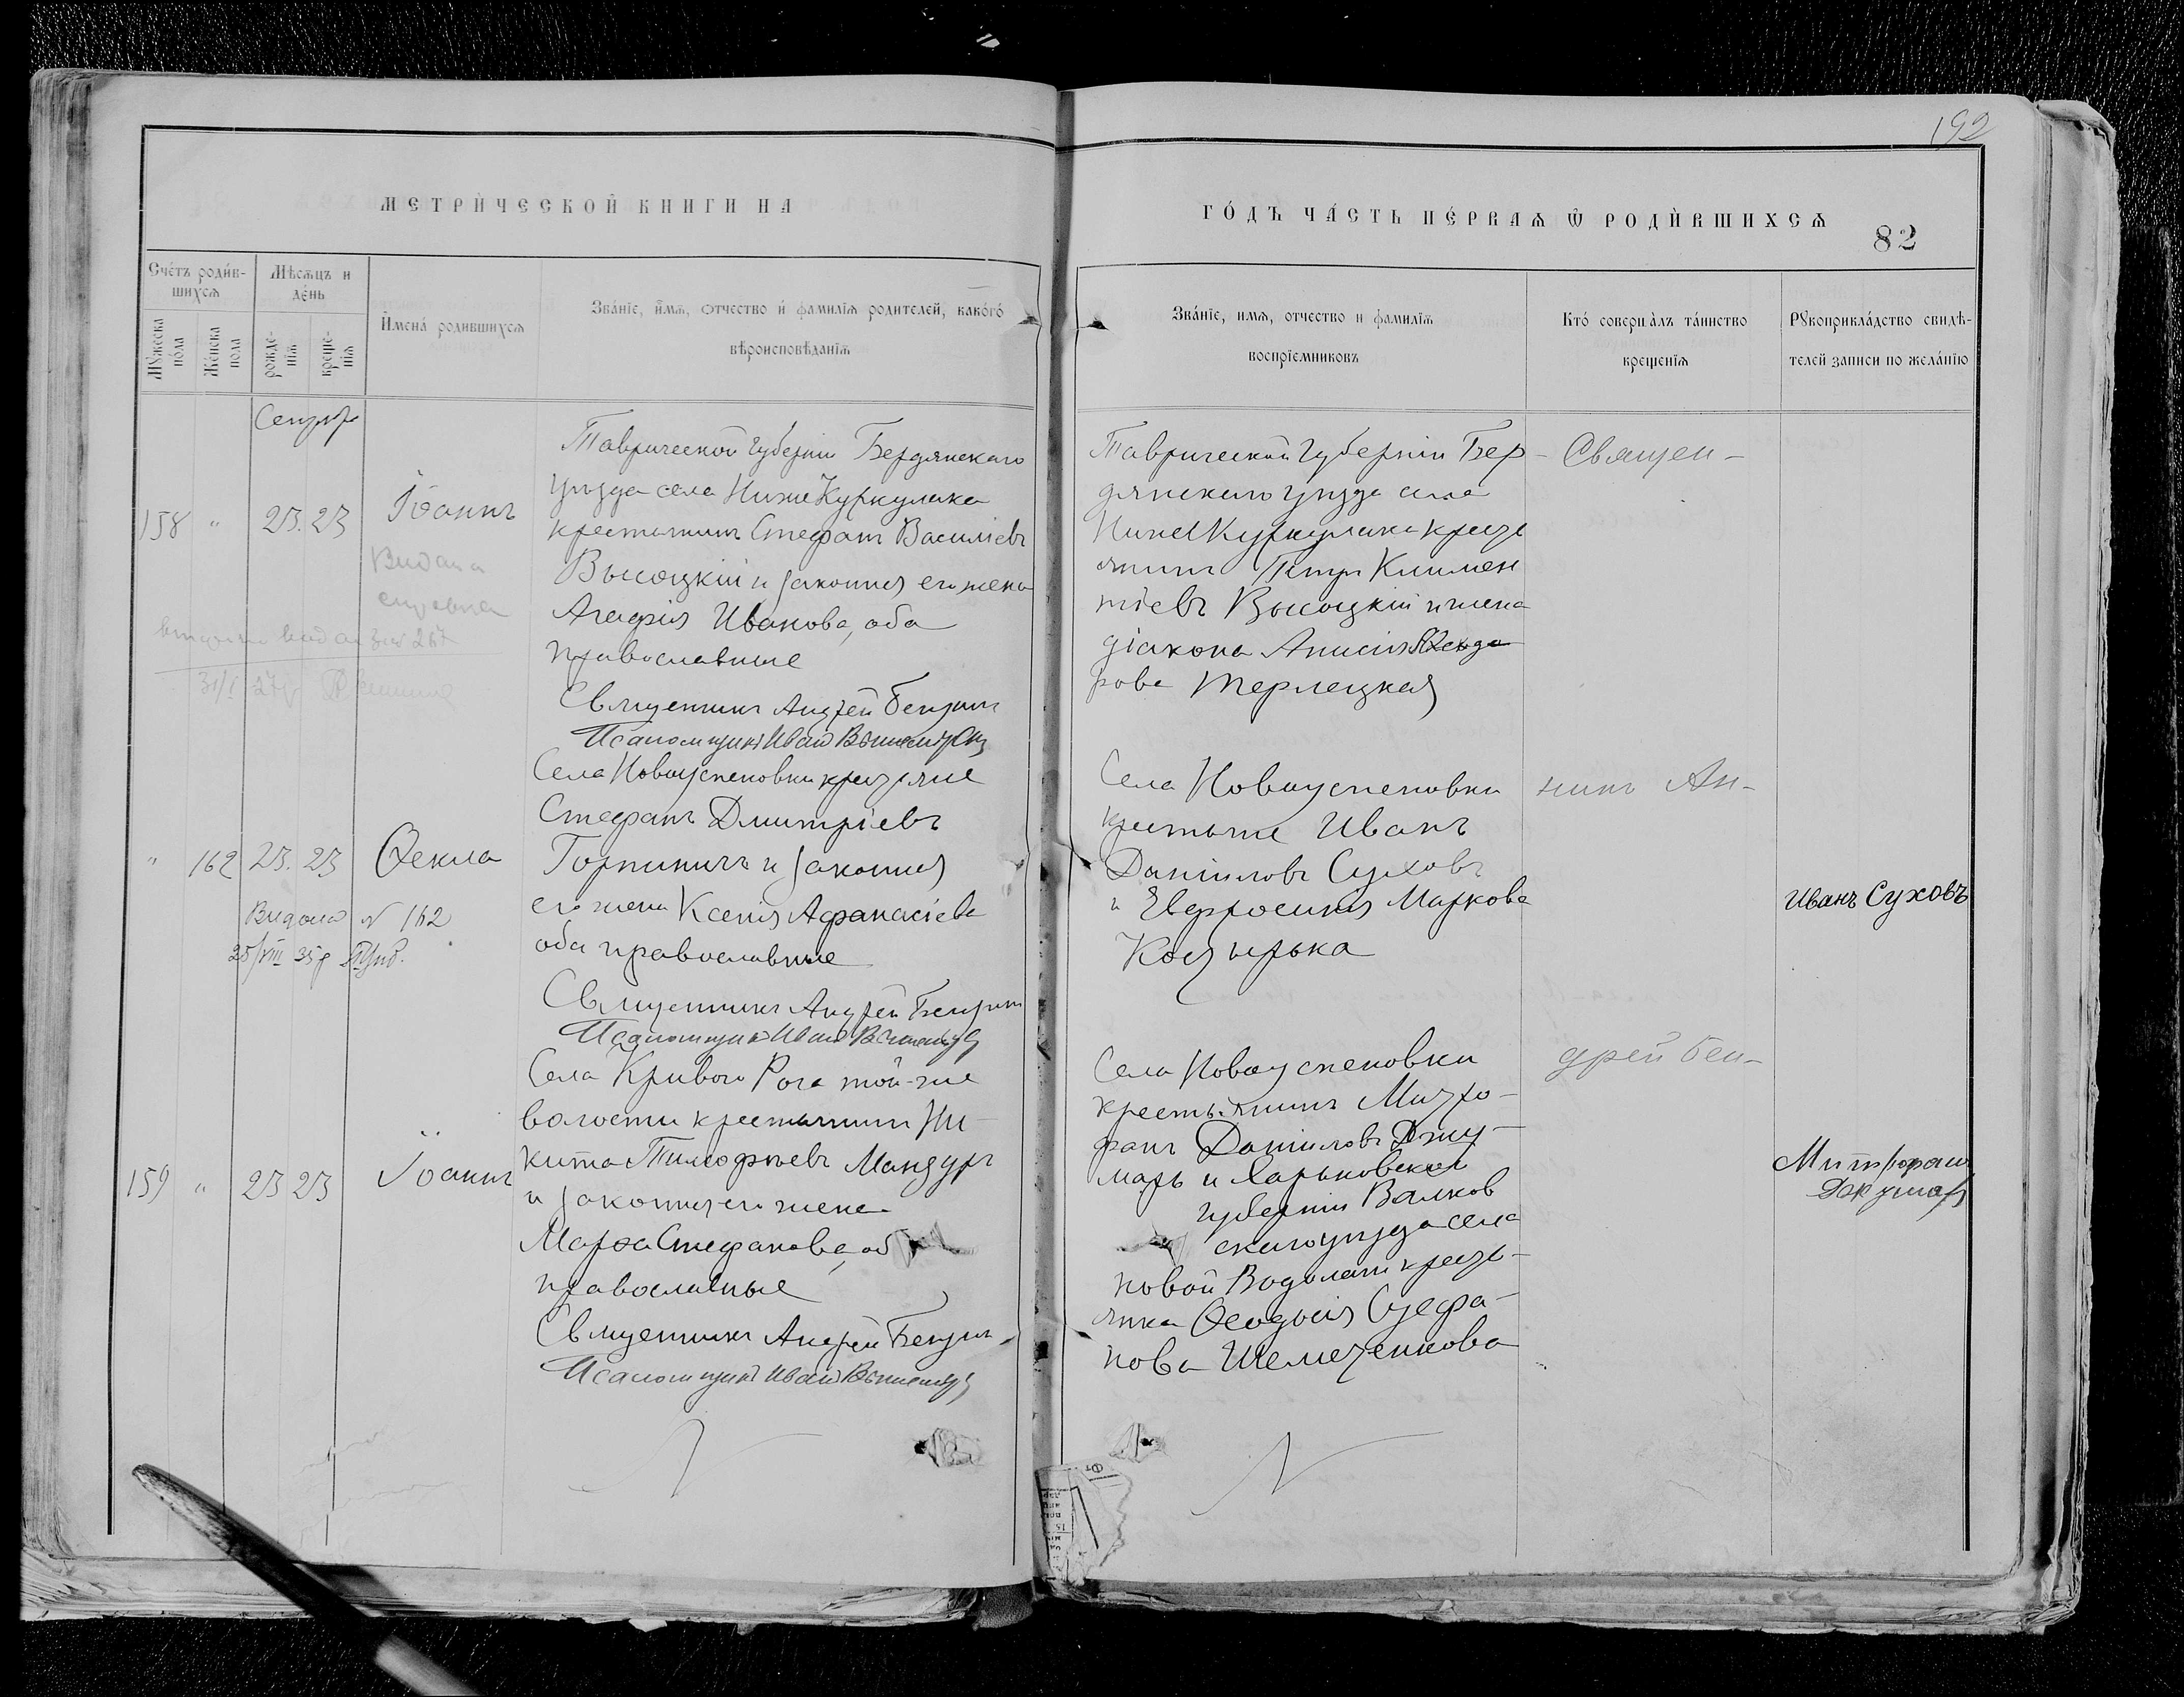 192
МЕТРИ́ЧЕСКОЙ КНИГИ НА
ГО́ДЪ ЧА́СТЬ ПЕ́РВАѦ Ѿ РОДИ́ВШИХСѦ
82
Сче́тъ роди́в-
шихсѧ
Мѣсѧцъ и
де́нь
Мꙋ́жеска
по́ла
Же́нска
пола
рожде-
нїѧ
креще-
нїѧ
Имена́ родившихсѧ
Зва́нїе, и́мѧ, отчество и́ фамилїѧ родителей, како́го́
вѣроисповѣданїѧ
Зва́нїе, имѧ, отчество и фамилїѧ
воспрїемниковъ
Кто́ соверша́лъ та́инство
крещенїѧ
Рꙋкоприкла́дство свидѣ-
телей записи по жела́нїю
158 " 23. 23
Іоаннъ
Видана
справка
31/I 27г
Таврической губерніи Бердянскаго
уѣзда села Нижне Куркулака
крестьянинъ Стефанъ Василіевъ
Высоцкій и законная его жена
Агафія Иванова, оба
православные
Священникъ Андрей
Псаломщикъ Иван
Таврической губерніи Бер-
дянскаго уѣзда села
Нижне Куркулака крест
янинъ Петръ Климен
тіевъ Высоцкій и жена
діакона Анисія
рова Терлецкая
Священ-
" 162 23. 23
Ѳекла
Видана N 162
25/VIII 35 г
Села Новоуспеновки крестьяне
Стефанъ Дмитріевъ
Горпиничъ и законная
его жена Ксенія Афанасіева
оба православные
Священникъ Андрей
Псаломщикъ Иван
Села Новоуспеновки
крестьяне Иванъ
Даниловъ Суховъ
и Евфросинія Маркова
Козырька
никъ Ан-
Иванъ Суховъ
159 " 23 23
Іоаннъ
Села Кривого Рога той-же
волости крестьянинъ Ни-
кита Тимофѣевъ Мандуръ
и законная его жена
Марѳа Стефанова, об
православные
Священникъ Андрей
Псаломщикъ Иван
Села Новоуспеновки
крестьянинъ Митро-
фанъ Даниловъ Джу-
марь и Харьковской
губерніи Валков
скаго уѣзда села
Новой Водолаги кресть-
янка Ѳеодосія Стефа-
нова Шелестенкова
дрей Бен-
Митрофанъ
Джумарь